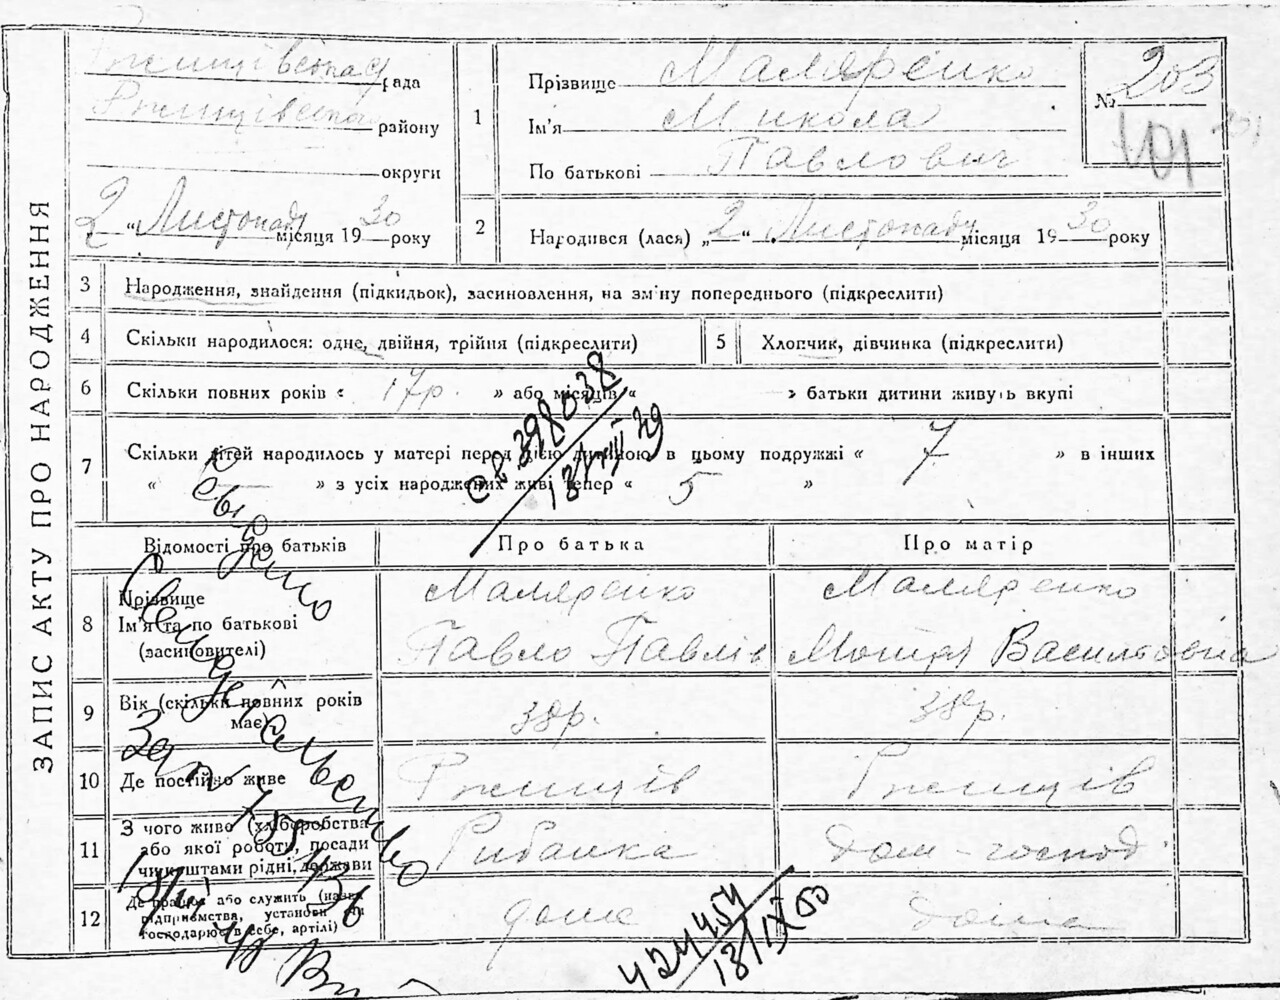 ЗАПИС АКТУ ПРО НАРОДЖЕННЯ
Ржищівська рада
Ржищівського району
округи
2 „ Листопада місяця 1930 року
1
Прізвище Маляренко
Ім'я Микола
По батькові Павлович
№ 203
101
2
Народився (лася) „2“ Листопада місяця 1930 року
3
Народження, знайдення (підкидьок), засиновлення, на зміну попереднього (підкреслити)
4
Скільки народилося: одне, двійня, трійня (підкреслити)
5
Хлопчик, дівчинка (підкреслити)
6
Скільки повних років « 17р. » або місяців « » батьки дитини живуть вкупі
7
Скільки дітей народилось у матері перед цією дитиною в цьому подружжі « 7 » в інших
« — » з усіх народжених живі тепер « 5 »
СВ. 398038
13/XII 49
Відомості про батьків
Про батька
Про матір
8
Прізвище
Ім'я та по батькові
(засиновителі)
Маляренко
Павло Павлів
Маляренко
Мотря Василівна
9
Вік (скільки повних років має)
38р.
38р.
10
Де постійно живе
Ржищів
Ржищів
11
З чого живе (хліборобства або якої роботи, посади чи коштами рідні, держави
Рибалка
Дом-господ.
12
Де працює або служить (назва підприємства, установи чи господарює в себе, артілі)
дома
Дома
424454
13/IX 50